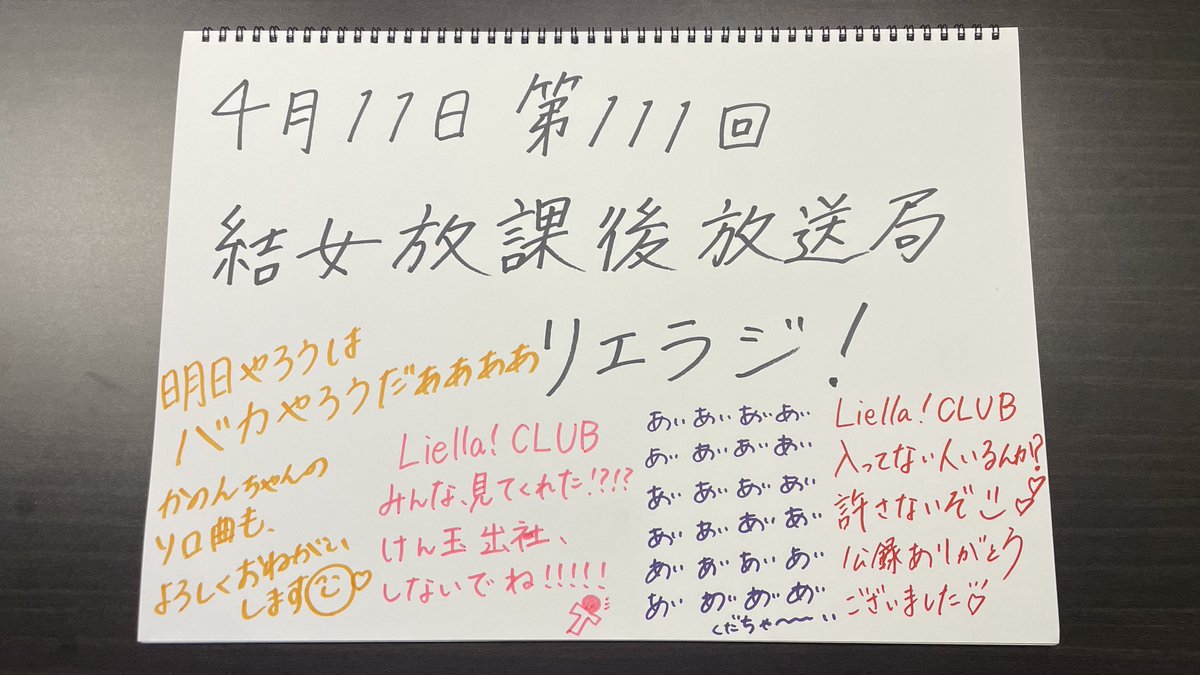 4月11日 第111回
結女放課後放送局
リエラジ!
明日やろうは
バカやろうだぁぁぁぁ
かのんちゃんの
ソロ曲も、
よろしくおねがい
します
Liella! CLUB
みんな、見てくれた!?!?
けん玉出社、
しないでね!!!!!
あぃ あぃ あぃ あぃ
あぃ あぃ あぃ あぃ
あぃ あぃ あぃ あぃ
あぃ あぃ あぃ あぃ
あぃ あぃ あぃ あぃ
あぃ あぃ あぃ あぃ
くだちゃ〜〜〜ぃ
Liella! CLUB
入ってない人いるんか!?
許さないぞ
公録ありがとう
ございました♡